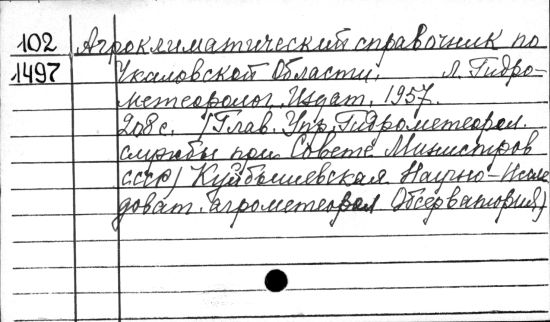 102 Агроклиматический справочник по
1497 Чкаловской Области. Л. Гидро-
метеоролог. Издат. 1957.
208 с. (Глав. Упр. Гидрометеорол.
службы при Совете Министров
СССР) Куйбышевская Научно-Иссле
доват. агрометеорол Обсерватория)